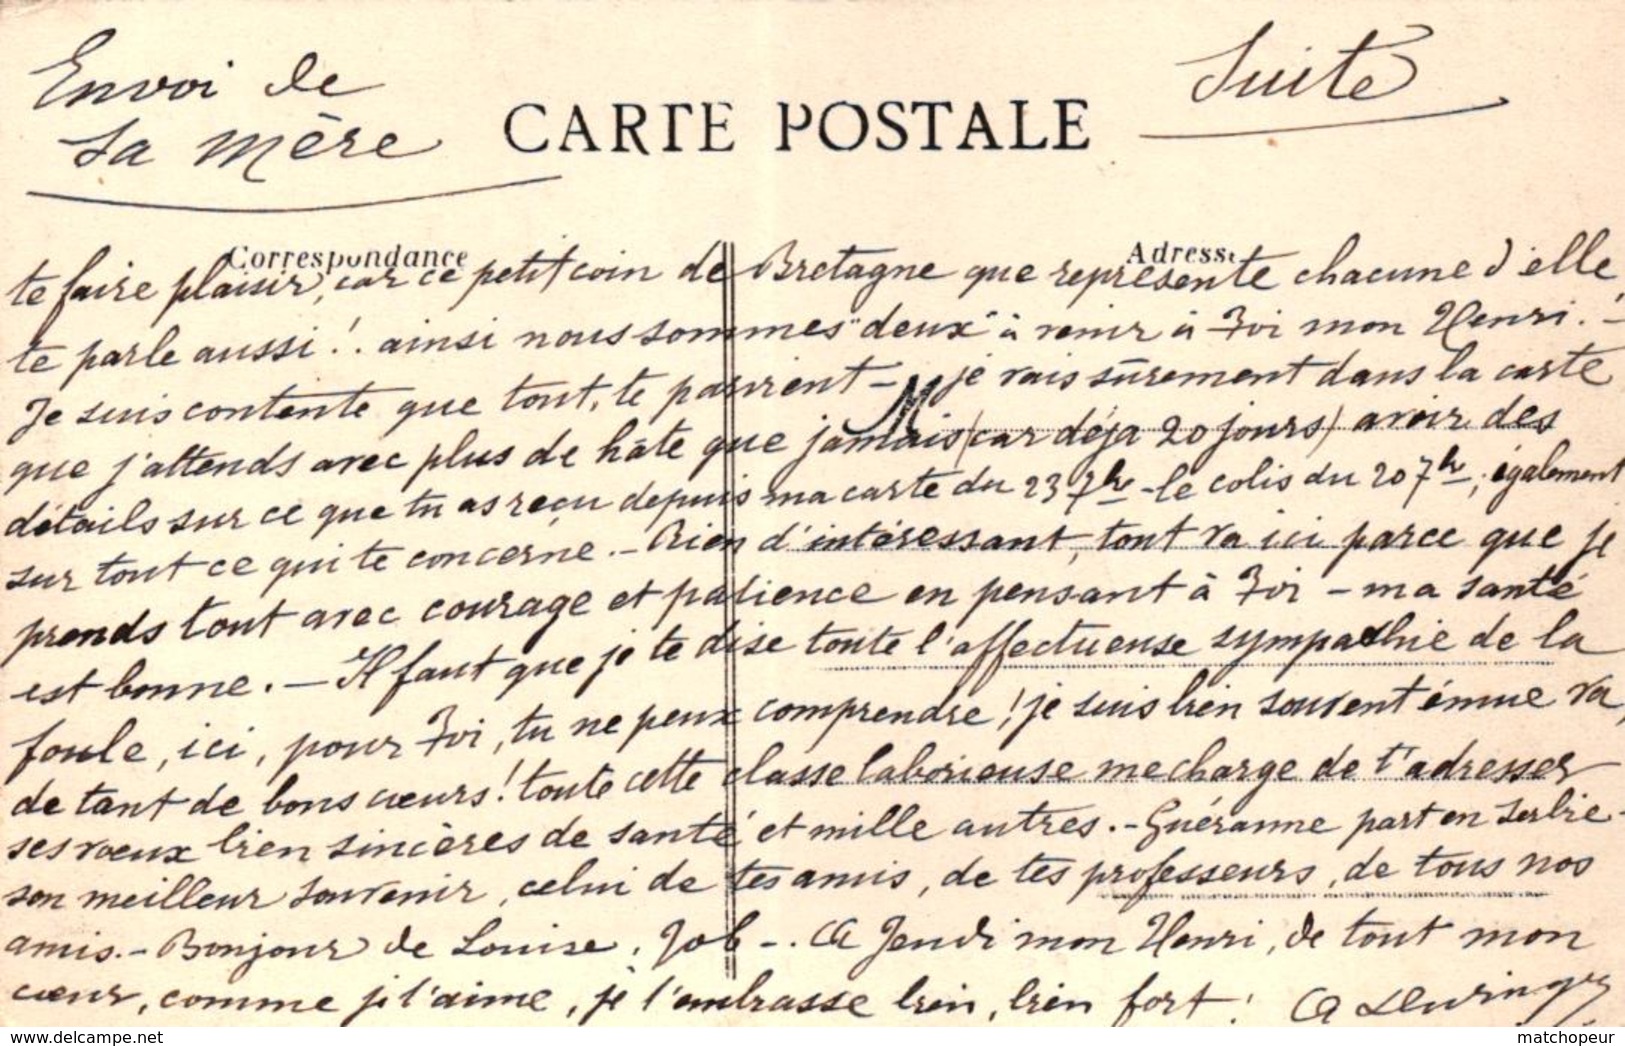 Envoi de
sa mère
Suite
CARTE POSTALE
Correspondance
Adresse
te faire plaisir, car ce petit coin de Bretagne que représente chacune d'elle
te parle aussi !.. ainsi nous sommes "deux" à venir à Toi mon Henri. ! -
Je suis contente que tout, te parvient - je vais sûrement dans la carte
que j'attends avec plus de hâte que jamais (car déja 20 jours) avoir des
détails sur ce que tu as reçu depuis ma carte du 23 7bre - le colis du 20 7bre ; également
sur tout ce qui te concerne. - Rien d'intéressant, tout va ici parce que je
prends tout avec courage et patience en pensant à Toi - ma santé
est bonne. - Il faut que je te dise toute l'affectueuse sympathie de la
foule, ici, pour Toi, tu ne peux comprendre ! je suis bien souvent émue va,
de tant de bons cœurs ! toute cette classe laborieuse me charge de t'adresser
ses vœux bien sincères de santé et mille autres. - Guéranne part en Serbie -
son meilleur souvenir, celui de tes amis, de tes professeurs, de tous nos
amis. - Bonjour de Louise, Job -. A Jeudi mon Henri, de tout mon
cœur, comme je t'aime, je t'embrasse bien, bien fort !
delcampe.net
matchopeur